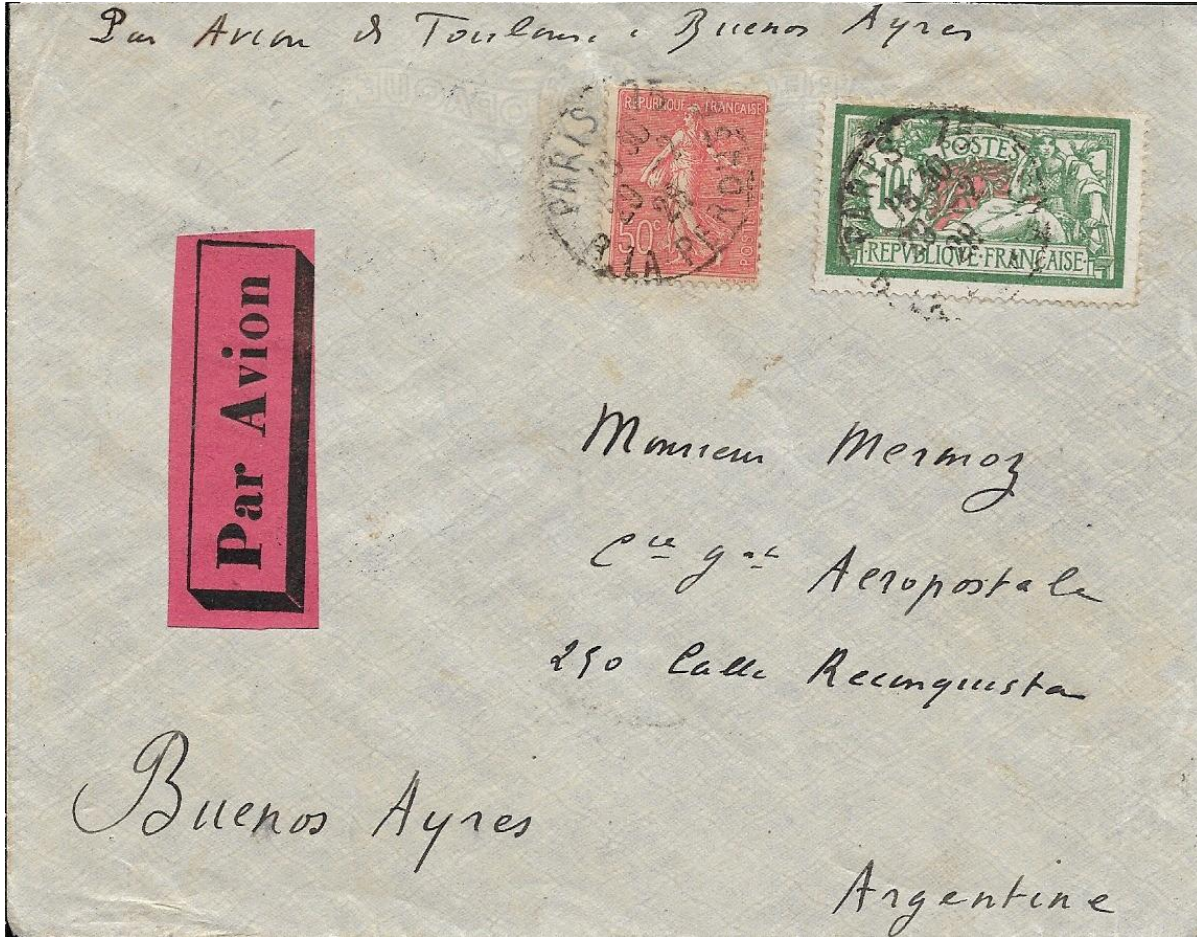 Par Avion de Toulouse à Buenos Ayres
REPUBLIQUE FRANÇAISE
50c
POSTES
PARIS
R. LA PERDIS
POSTES
10f
REPVBLIQVE·FRANÇAISE
PARIS
Par Avion
Monsieur Mermoz
Cie gale Aeropostale
250 Calle Reconquista
Buenos Ayres
Argentine